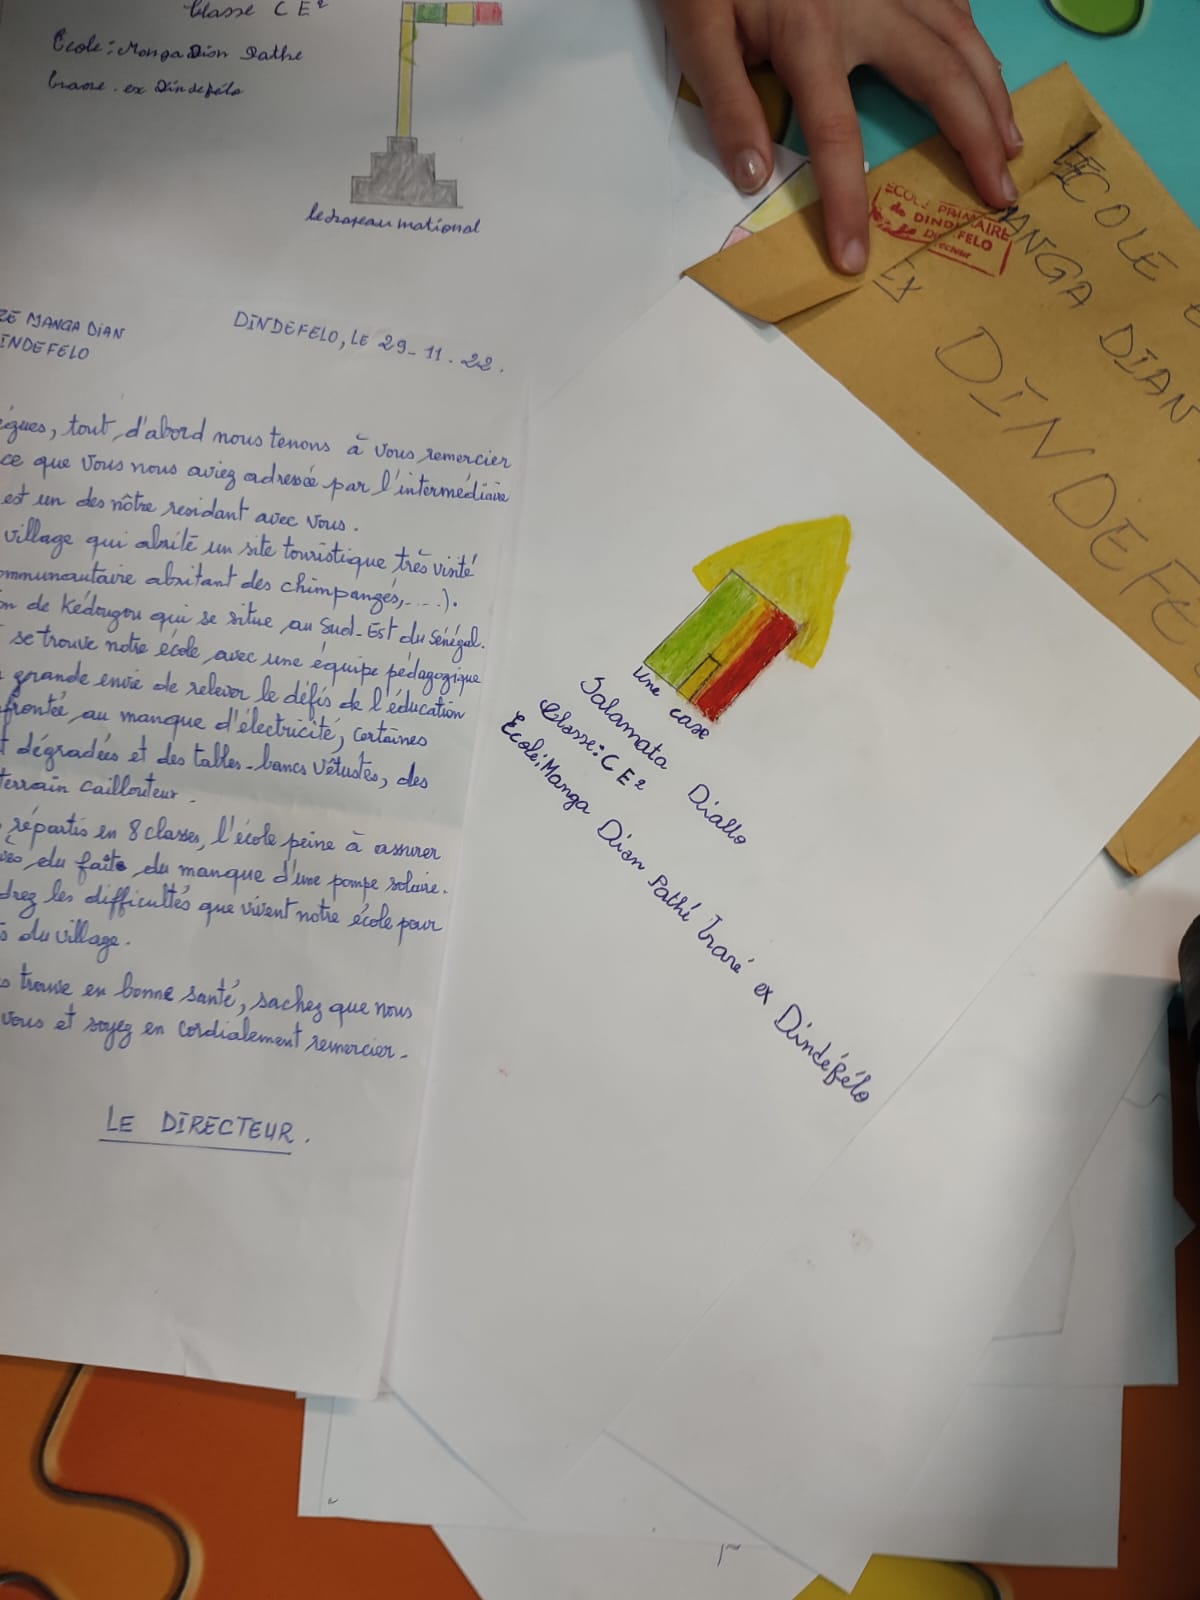 Classe CE2
École: Manga Dian Pathe
Trare. ex Dindefélo
le drapeau national
MANGA DIAN
DINDEFELO, LE 29-11-22.
tout d'abord nous tenons à vous remercier
ce que vous nous aviez adressée par l'intermédiaire
est un des nôtre residant avec vous.
village qui abrite un site touristique très visité
abritant des chimpangés,....).
de Kédougou qui se situe au Sud-Est du Sénégal.
se trouve notre école avec une équipe pédagogique
grande envie de relever le défis de l'éducation
au manque d'électricité, certaines
dégradées et des tables-bancs vêtustes, des
terrain caillouteux.
répartis en 8 classes, l'école peine à assurer
du faite du manque d'une pompe solaire.
les difficultés que vivent notre école pour
du village.
trouve en bonne santé, sachez que nous
vous et soyez en cordialement remercier.
LE DIRECTEUR.
ECOLE PRIMAIRE
de DINDEFELO
Directeur
ECOLE
MANGA DIAN
EX
Une case
Salamata Diallo
Classe: CE2
École: Manga Dian Pathé Traré ex Dindéfélo